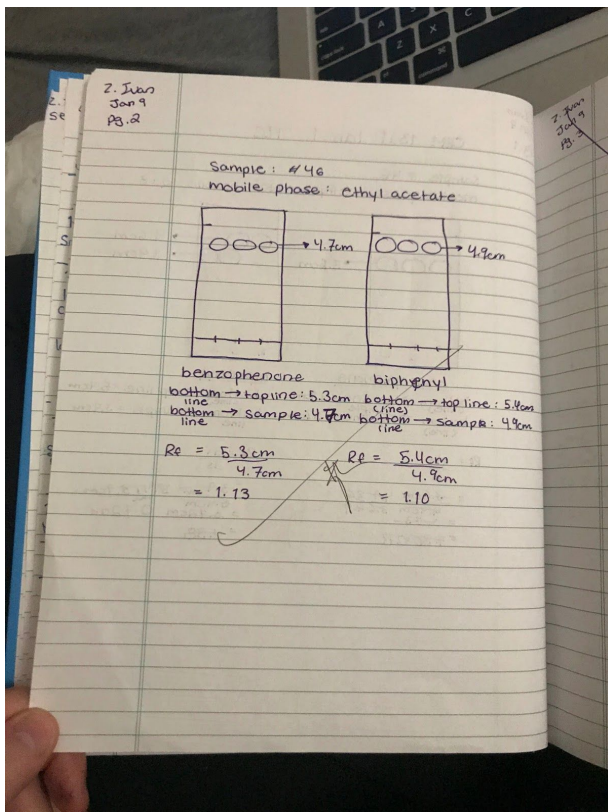 Z. Ivan
Jan 9
Pg. 2
Z. Ivan
Jan 9
Pg. 3
Sample: #46
mobile phase: ethyl acetate
4.7cm
4.9cm
benzophenone
biphenyl
bottom → top line: 5.3cm
line
bottom → sample: 4.7cm
line
bottom → top line: 5.4cm
(line)
bottom → sample: 4.9cm
line
Rf = 5.3cm
4.7cm
= 1.13
Rf = 5.4cm
4.9cm
= 1.10